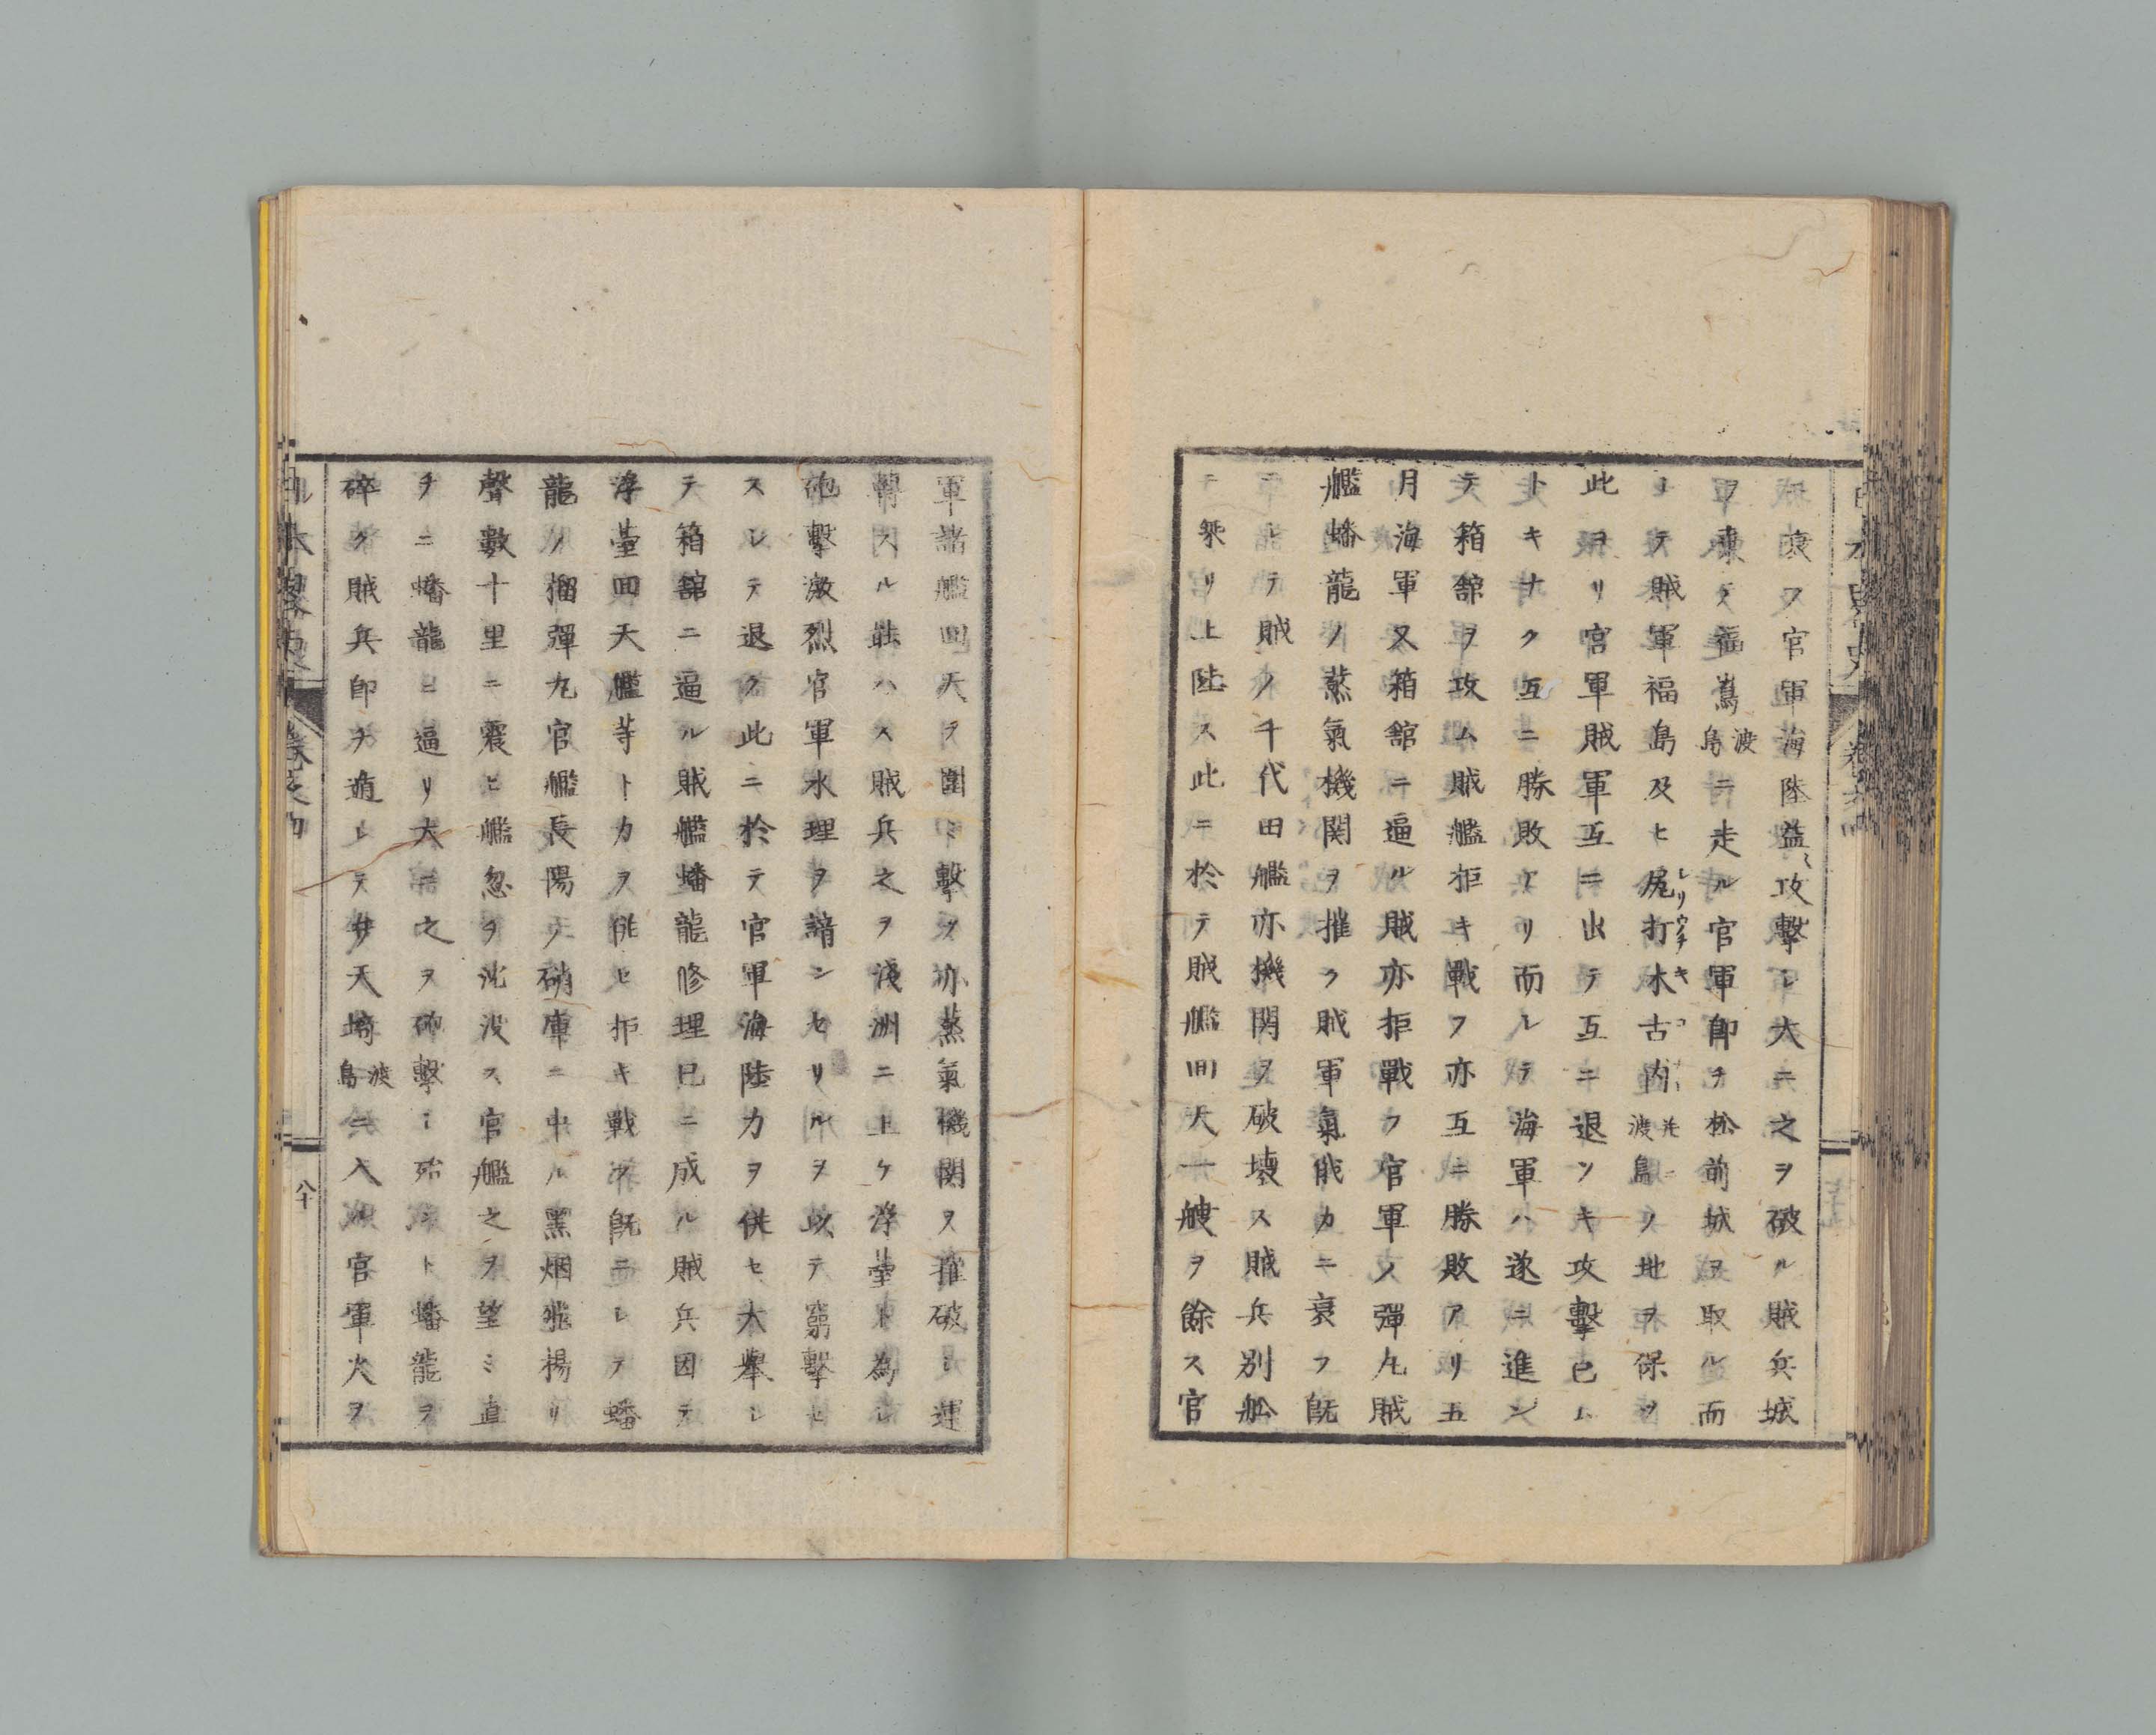 衰フ官軍海陸益〻攻擊シ大ニ之ヲ破ル賊兵城
ヲ棄テ福嶌渡島ニ走ル官軍即チ松前城ヲ取ル而
シテ賊軍福島及ヒ尻打木古内渡島ノ地ヲ保ツ
此ヨリ官軍賊軍互ニ出テ互ニ退ソキ攻擊已ム
トキナク互ニ勝敗アリ而レテ海軍ハ遂ニ進ン
テ箱舘ヲ攻ム賊艦拒キ戰フ亦互ニ勝敗アリ五
月海軍又箱舘ニ逼ル賊亦拒戰フ官軍ノ彈丸賊
艦蟠龍ノ蒸氣機関ヲ摧ク賊軍氣俄カニ衰フ既
ニシテ賊ノ千代田艦亦機関ヲ破壊ス賊兵別舩
ニ乘リ上陸ス此ニ於テ賊艦囘天一艘ヲ餘ス官
軍諸艦囘天ヲ圍ミ擊ツ亦蒸氣機関ヲ摧破シ運
轉スル能ハス賊兵之ヲ淺洲ニ上ケ浮臺ト為シ
砲擊激烈官軍水理ヲ諳ンセサルヲ以テ窮擊セ
スシテ退ク此ニ於テ官軍海陸力ヲ併セ大擧シ
テ箱舘ニ逼ル賊艦蟠龍修理已ニ成ル賊兵因テ
浮臺囘天艦等ト力ヲ併セ拒キ戰フ既ニシテ蟠
龍ノ榴彈丸官艦長陽ノ硝庫ニ中ル黑烟騰揚リ
聲數十里ニ震ヒ艦忽チ沈没ス官艦之ヲ望ミ直
チニ蟠龍ニ逼リ大ニ之ヲ砲擊シ殆ント蟠龍ヲ
碎ク賊兵即チ遁レテ辨天埼渡島ニ入ル官軍火ヲ
八十